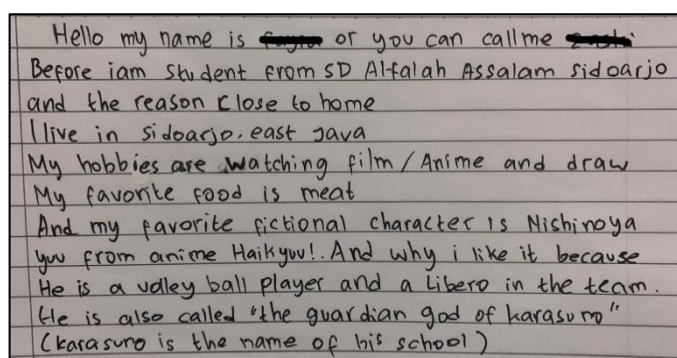 Hello my name is or you can call me
Before iam student from SD Alfalah Assalam sidoarjo
and the reason close to home
I live in sidoarjo, east java
My hobbies are watching film / Anime and draw
My favorite food is meat
And my favorite fictional character is Nishinoya
yuu from anime Haikyuu!. And why i like it because
He is a volley ball player and a Libero in the team.
He is also called "the guardian god of karasuno"
(karasuno is the name of his school)